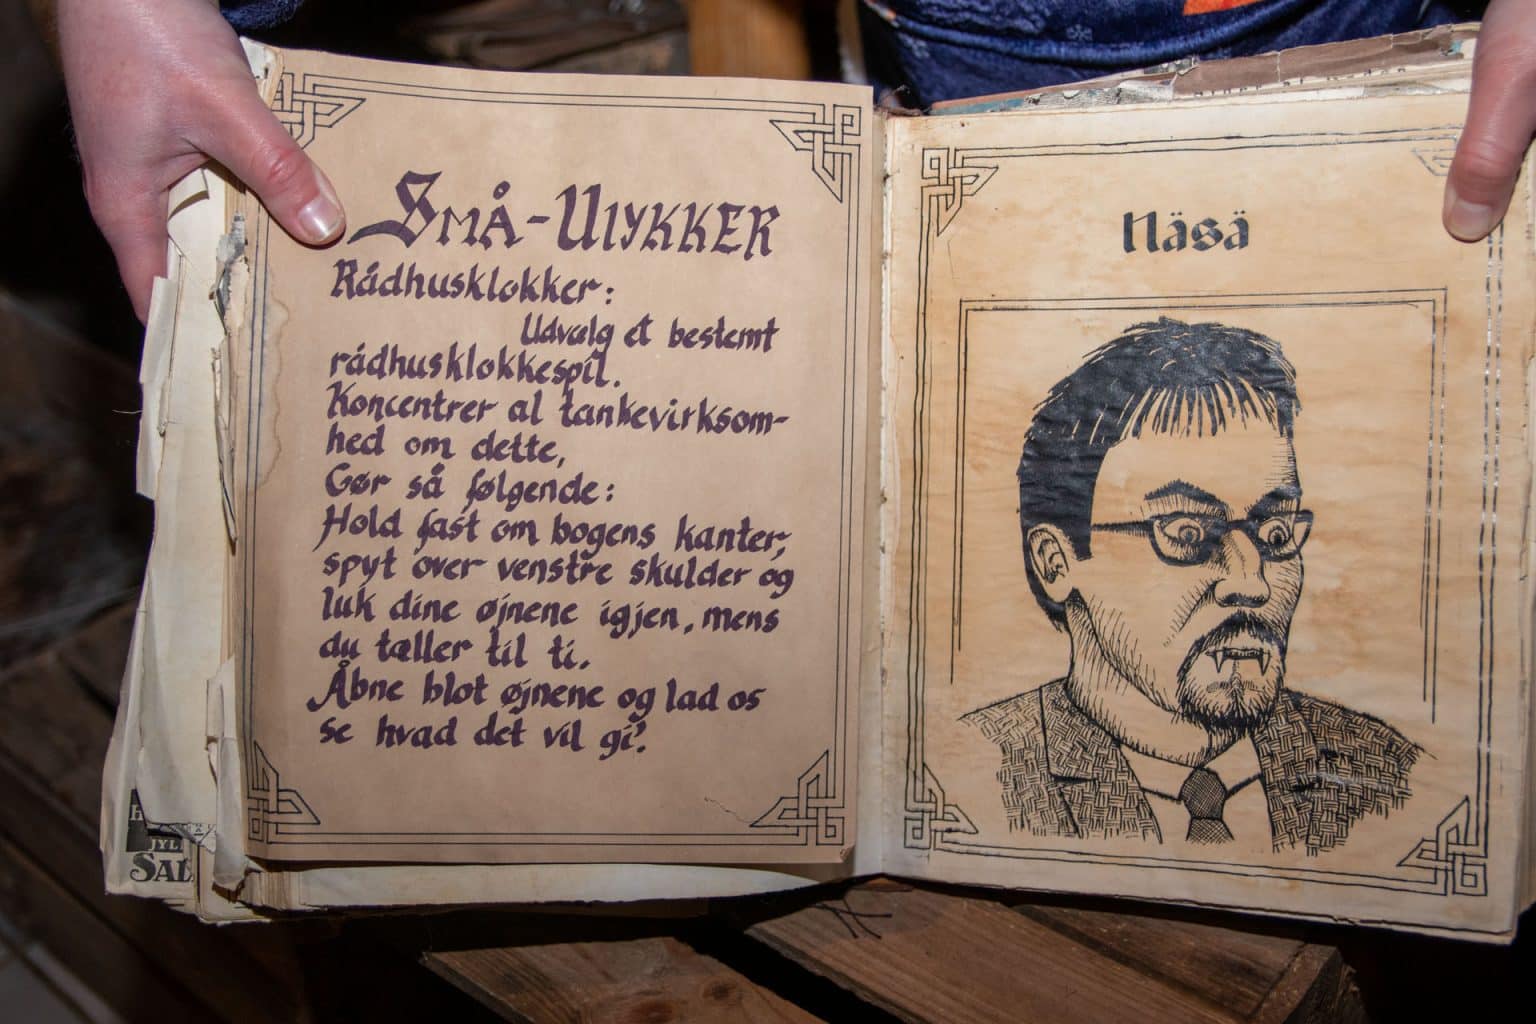 Små-Ulykker
Rådhusklokker:
Udvælg et bestemt
rådhusklokkespil.
Koncentrer al tankevirksom-
hed om dette,
Gør så følgende:
Hold fast om bogens kanter,
spyt over venstre skulder og
luk dine øjnene igjen, mens
du tæller til ti.
Åbne blot øjnene og lad os
se hvad det vil gi'.
Näsä
SAL